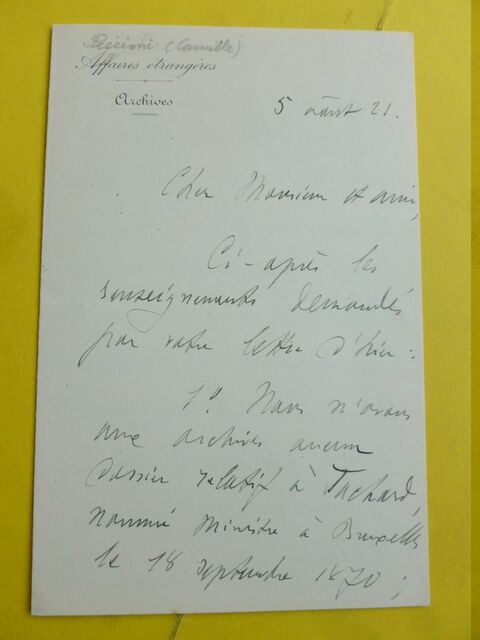 Piccioni (Camille)
Affaires étrangères
Archives
5 août 21.
Cher Monsieur et ami,
Ci-après les
renseignements demandés
par votre lettre d'hier :
1º. Nous n'avons
aux archives aucun
dossier relatif à Tachard,
nommé Ministre à Bruxelles
le 18 septembre 1870 ;